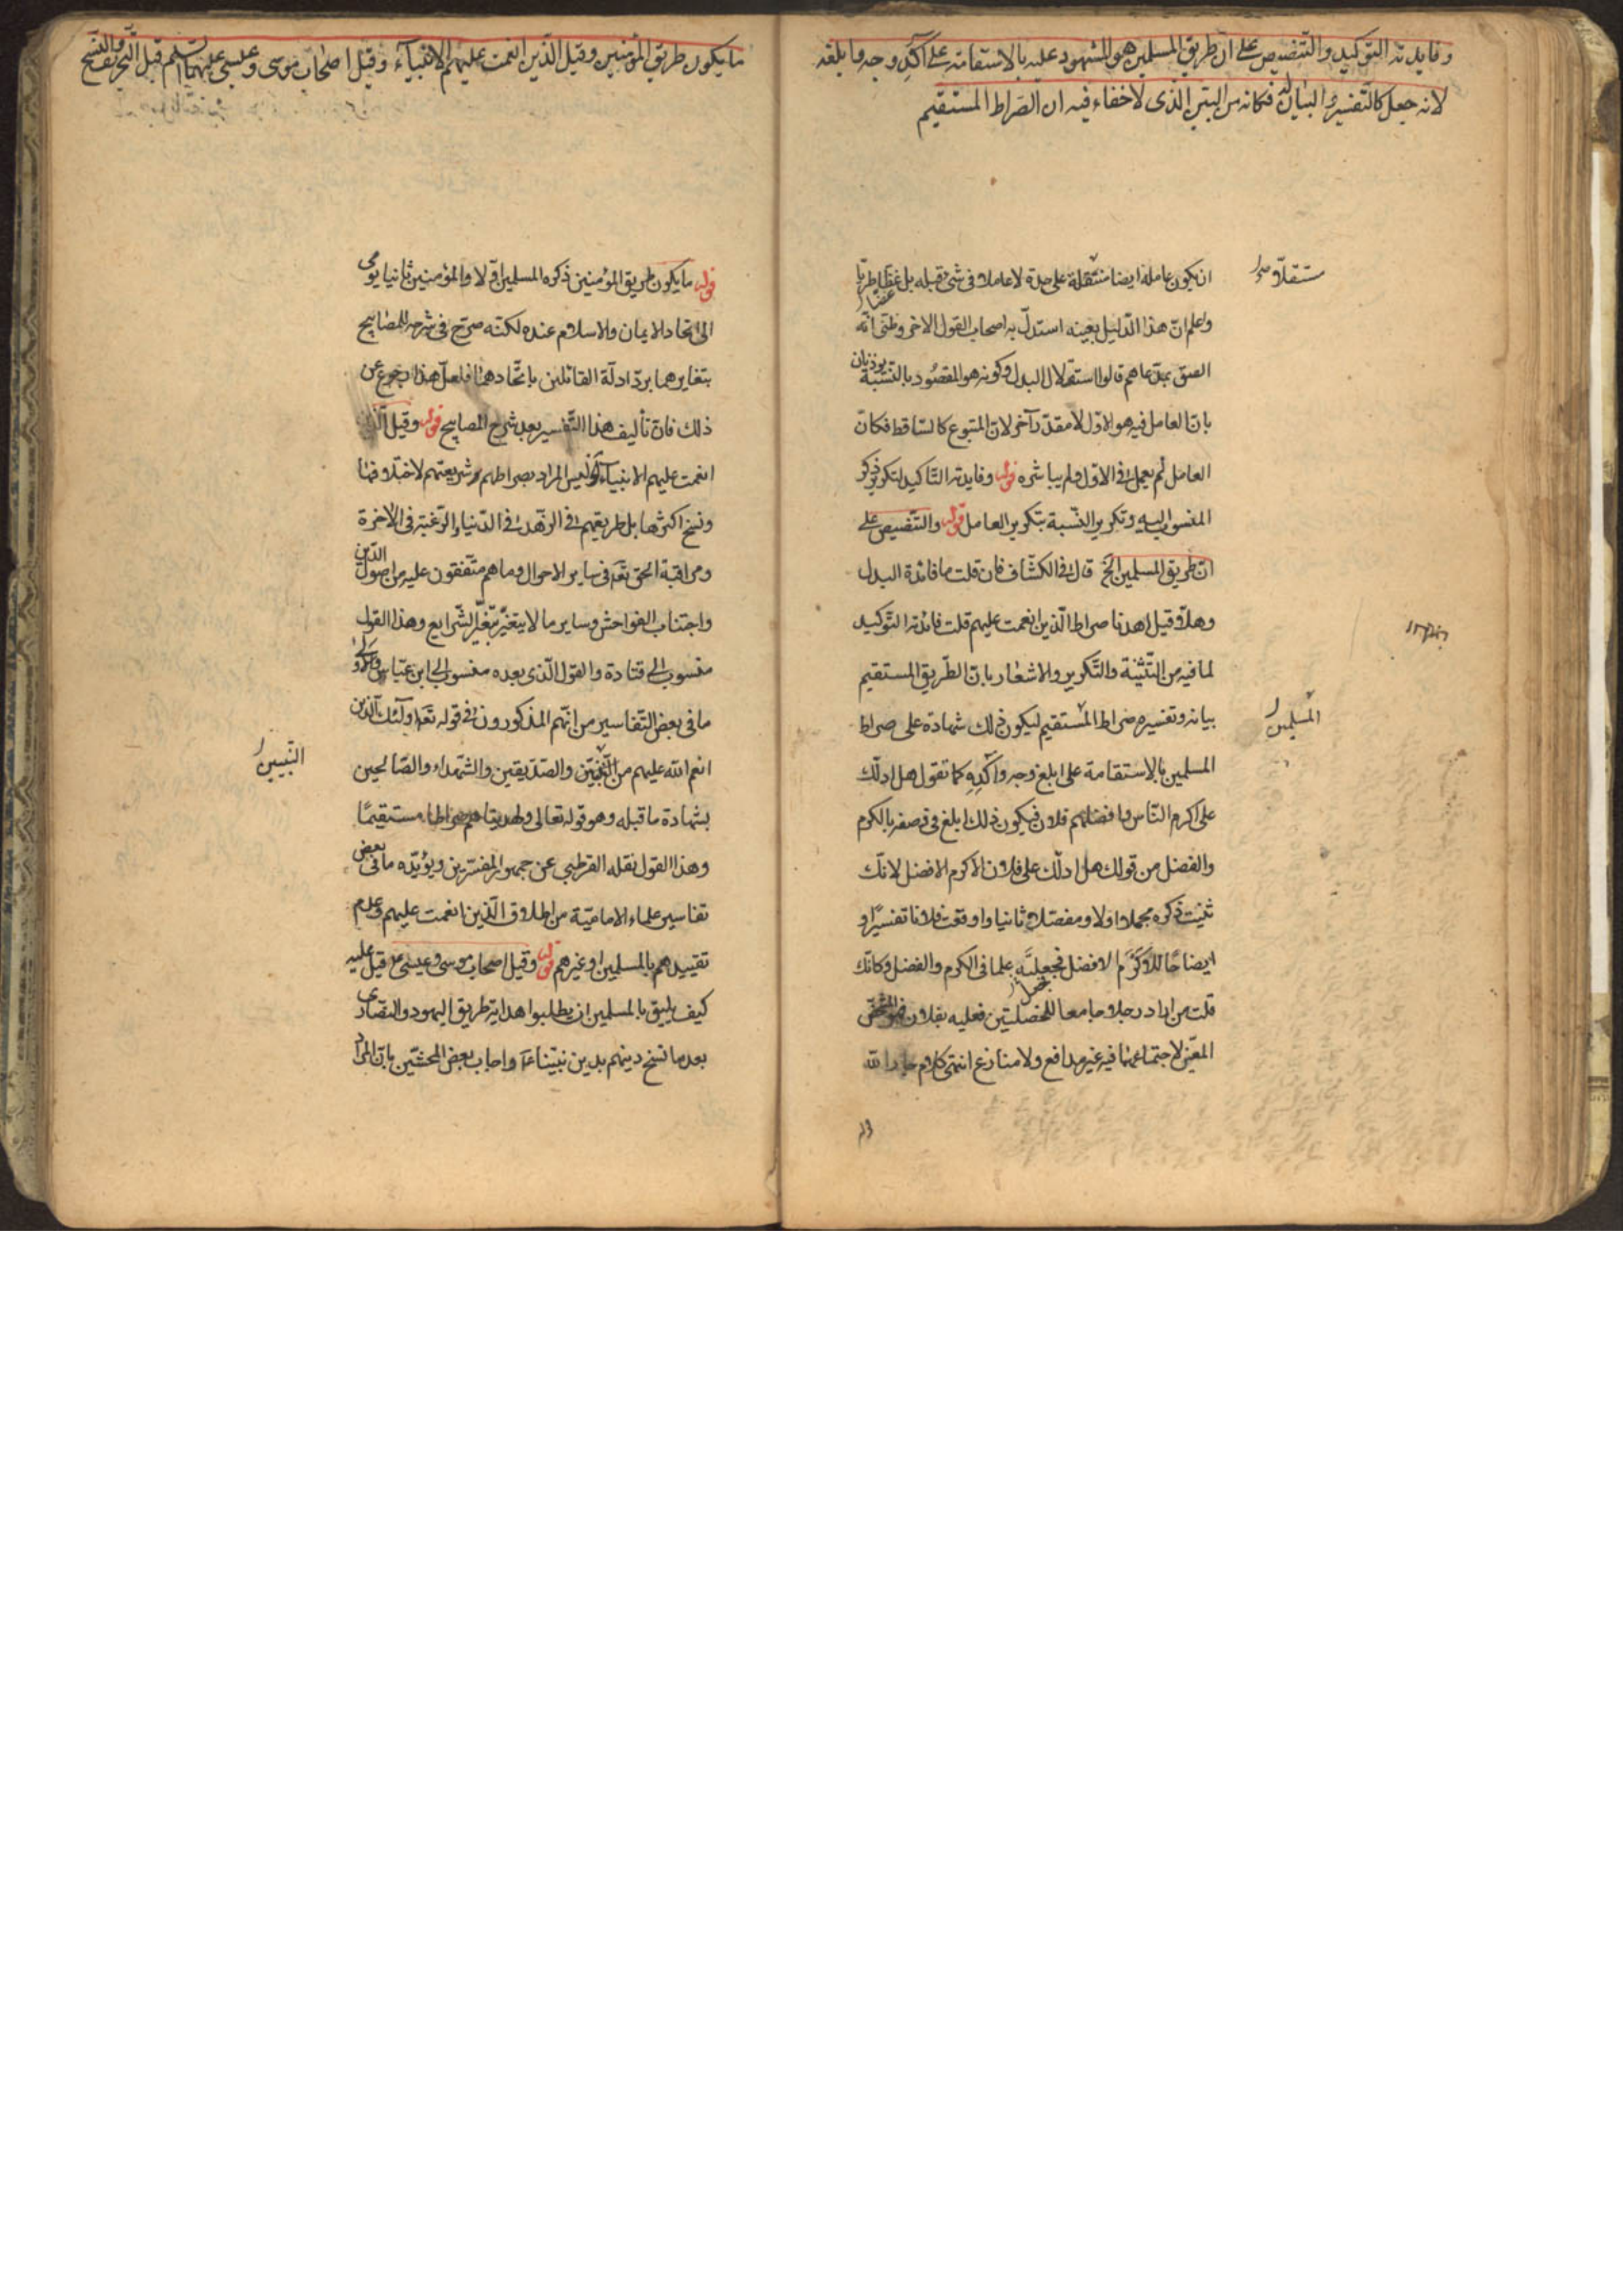 وفايدته التوكيد والتنصيص على ان طريق المسلمين هو المشهود عليه بالاستقامة على آكد وجه وابلغه
لانه جعل كالتفسير والبيان له فكانه من البين الذى لاخفاء فيه ان الصراط المستقيم
ان يكون عامله ايضا مستقلة على حدة لا عاملا فى شئ قبله بل
مستقلا
واعلم ان هذا الدليل بعينه استدل به اصحاب القول الاخر وظنى انه
الصق بمدعاهم قالوا استقلال البدل وكونه هو المقصود بالنسبة يوذنان
بان العامل فيه هو الاول لا مقدر آخر لان المتبوع كالساقط فكان
العامل لم يعمل فى الاول ولم يباشره قوله وفايدته التاكيد لتكرير ذكر
المنسوب اليه وتكرير النسبة بتكرير العامل قوله والتنصيص على
ان طريق المسلمين الخ قال فى الكشاف فان قلت ما فائدة البدل
وهلا قيل اهدنا صراط الذين انعمت عليهم قلت فائدته التوكيد
لما فيه من التثنية والتكرير والاشعار بان الطريق المستقيم
بيانه وتفسيره صراط المستقيم ليكون ذلك شهادة على صراط
المسلمين
المسلمين بالاستقامة على ابلغ وجه وآكده كما تقول هل ادلك
على اكرم الناس وافضلهم فلان فيكون ذلك ابلغ فى وصفه بالكرم
والفضل من قولك هل ادلك على فلان الاكرم الافضل لانك
ثنيت ذكره مجملا اولا ومفصلا ثانيا واوقعت فلانا تفسيرا و
ايضاحا للاكرم الافضل فجعلته علما فى الكرم والفضل فكانك
قلت من اراد رجلا جامعا للخصلتين فعليه بفلان فهو المشخص
المعين لاجتماعهما فيه غير مدافع ولا منازع انتهى كلام جار الله
ما يكون طريق المؤمنين وقيل الذين انعمت عليهم الانبياء وقيل اصحاب موسى وعيسى عليهما السلم قبل التحريف والنسخ
قوله ما يكون طريق المؤمنين ذكره المسلمين اولا والمؤمنين ثانيا يومى
الى اتحاد الايمان والاسلام عنده لكنه صرح فى شرحه للمصابيح
بتغايرهما برد ادلة القائلين باتحادهما فلعل هذا رجوع عن
ذلك فان تأليف هذا التفسير بعد شرح المصابيح قوله وقيل الذين
انعمت عليهم الانبياء وليس المراد بصراطهم شريعتهم لاختلافها
ونسخ اكثرها بل طريقهم فى الزهد فى الدنيا والرغبة فى الاخرة
ومراقبة الحق تعم فى ساير الاحوال وما هم متفقون عليه من اصول الدين
واجتناب الفواحش وساير ما لا يتغير بتغير الشرايع وهذا القول
منسوب الى قتادة والقول الذى بعده منسوب الى ابن عباس
ما فى بعض التفاسير من انهم المذكورون فى قوله تعم اولئك الذين
انعم الله عليهم من النبيين والصديقين والشهداء والصالحين
النبيين
بشهادة ما قبله وهو قوله تعالى ولهديناهم صراطا مستقيما
وهذا القول نقله القرطبي عن جمهور المفسرين ويؤيده ما فى بعض
تفاسير علماء الامامية من اطلاق الذين انعمت عليهم وعدم
تقييدهم بالمسلمين او غيرهم قوله وقيل اصحاب موسى وعيسى ع قيل عليه
كيف يليق بالمسلمين ان يطلبوا هداية طريق اليهود والنصارى
بعد ما نسخ دينهم بدين نبينا ع واجاب بعض المحشين بان المراد